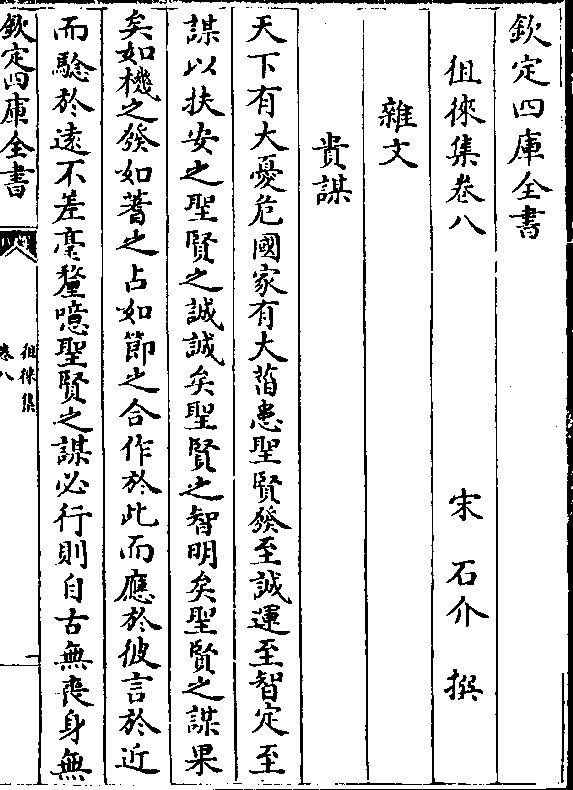 欽定四庫全書
徂徠集卷八
宋 石介 撰
雜文
貴謀
天下有大憂危國家有大菑患聖賢發至誠運至智定至
謀以扶安之聖賢之誠誠矣聖賢之智明矣聖賢之謀果
矣如機之發如蓍之占如節之合作於此而應於彼言於近
而驗於遠不差毫釐噫聖賢之謀必行則自古無喪身無
欽定四庫全書
徂徠集
卷八
一